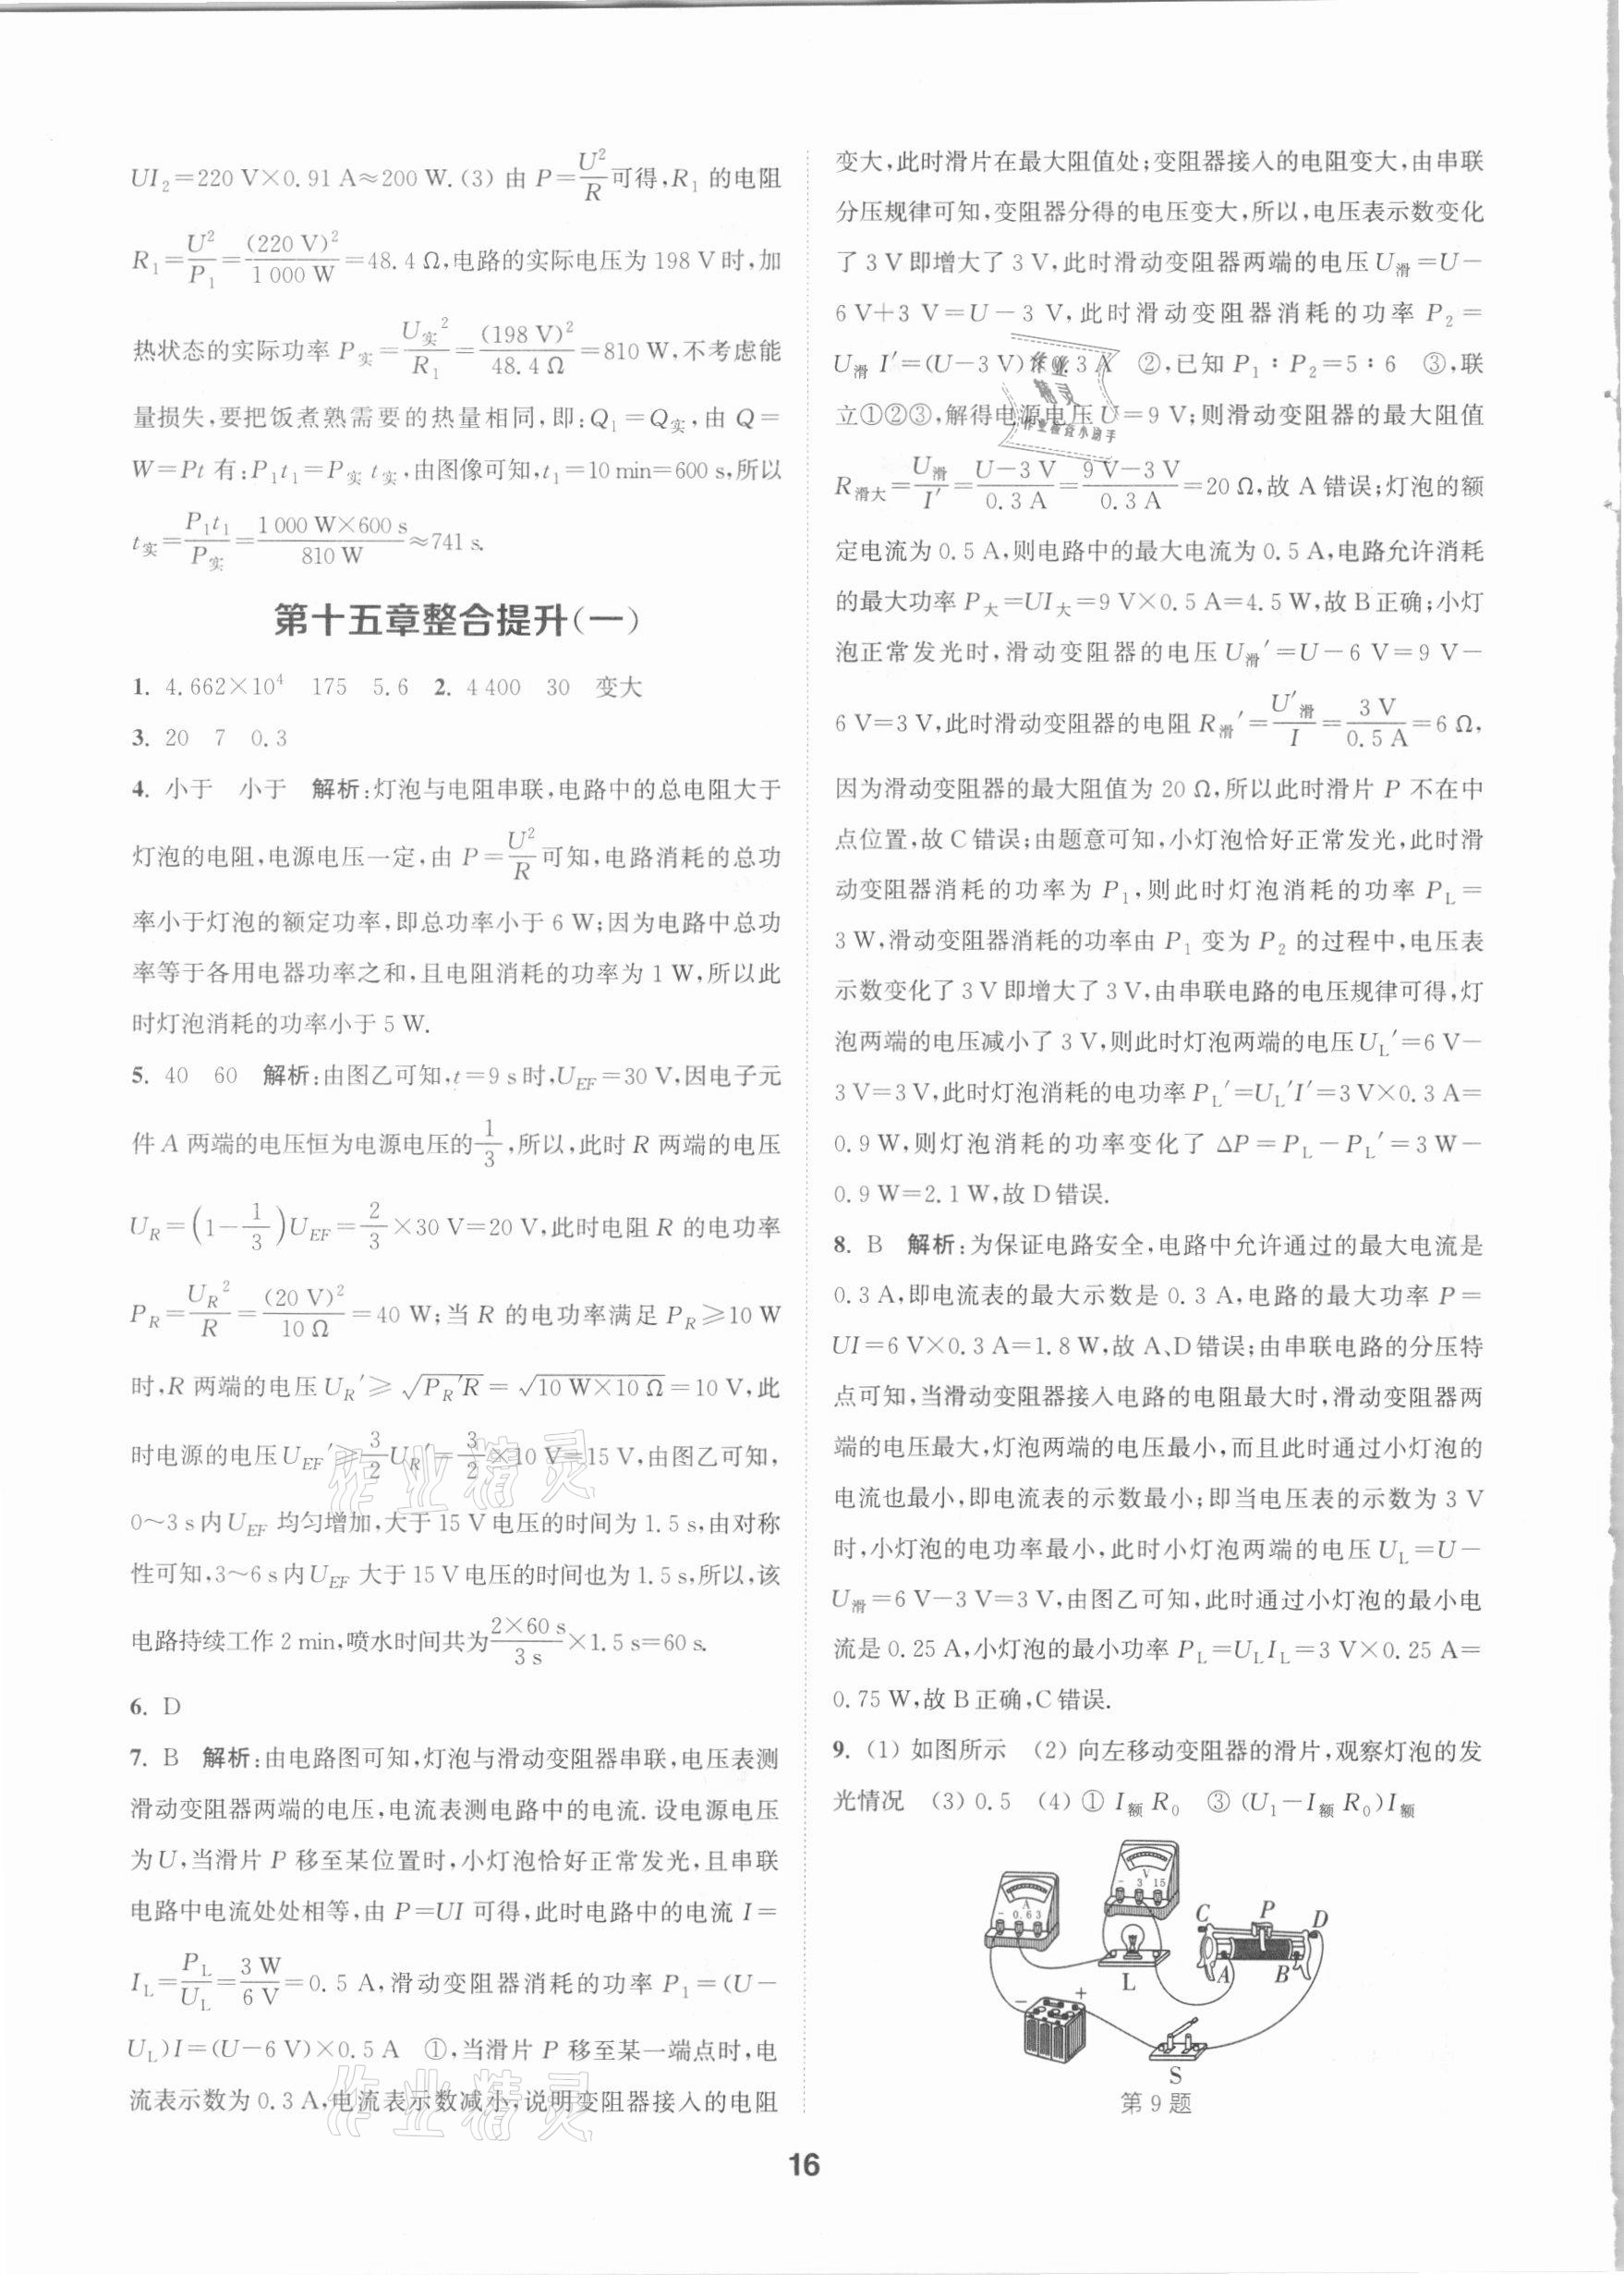 UI₂=220 V×0.91 A≈200 W.(3) 由 P=U²/R可得,R₁ 的电阻
R₁=U²/P₁=(220 V)²/1 000 W=48.4 Ω,电路的实际电压为 198 V 时,加
热状态的实际功率 P实=U实²/R₁=(198 V)²/48.4 Ω=810 W,不考虑能
量损失,要把饭煮熟需要的热量相同,即:Q₁=Q实,由 Q=
W=Pt 有:P₁t₁=P实 t实,由图像可知,t₁=10 min=600 s,所以
t实=P₁t₁/P实=1 000 W×600 s/810 W≈741 s.
第十五章整合提升(一)
1. 4.662×10⁴ 175 5.6 2. 4 400 30 变大
3. 20 7 0.3
4. 小于 小于 解析:灯泡与电阻串联,电路中的总电阻大于
灯泡的电阻,电源电压一定,由 P=U²/R可知,电路消耗的总功
率小于灯泡的额定功率,即总功率小于 6 W;因为电路中总功
率等于各用电器功率之和,且电阻消耗的功率为 1 W,所以此
时灯泡消耗的功率小于 5 W.
5. 40 60 解析:由图乙可知,t=9 s时,U_EF=30 V,因电子元
件 A 两端的电压恒为电源电压的1/3,所以,此时 R 两端的电压
U_R=(1-1/3)U_EF=2/3×30 V=20 V,此时电阻 R 的电功率
P_R=U_R²/R=(20 V)²/10 Ω=40 W;当 R 的电功率满足 P_R≥10 W
时,R 两端的电压 U_R′≥√(P_R′R)=√(10 W×10 Ω)=10 V,此
时电源的电压 U_EF′≥3/2U_R′=3/2×10 V=15 V,由图乙可知,
0~3 s内 U_EF 均匀增加,大于 15 V 电压的时间为 1.5 s,由对称
性可知,3~6 s内 U_EF 大于 15 V 电压的时间也为 1.5 s,所以,该
电路持续工作 2 min,喷水时间共为2×60 s/3 s×1.5 s=60 s.
6. D
7. B 解析:由电路图可知,灯泡与滑动变阻器串联,电压表测
滑动变阻器两端的电压,电流表测电路中的电流.设电源电压
为 U,当滑片 P 移至某位置时,小灯泡恰好正常发光,且串联
电路中电流处处相等,由 P=UI 可得,此时电路中的电流 I=
I_L=P_L/U_L=3 W/6 V=0.5 A,滑动变阻器消耗的功率 P₁=(U-
U_L)I=(U-6 V)×0.5 A ①,当滑片 P 移至某一端点时,电
流表示数为 0.3 A,电流表示数减小,说明变阻器接入的电阻
变大,此时滑片在最大阻值处;变阻器接入的电阻变大,由串联
分压规律可知,变阻器分得的电压变大,所以,电压表示数变化
了 3 V 即增大了 3 V,此时滑动变阻器两端的电压 U滑=U-
6 V+3 V=U-3 V,此时滑动变阻器消耗的功率 P₂=
U滑 I′=(U-3 V)×0.3 A ②,已知 P₁∶P₂=5∶6 ③,联
立①②③,解得电源电压 U=9 V;则滑动变阻器的最大阻值
R滑大=U滑/I′=U-3 V/0.3 A=9 V-3 V/0.3 A=20 Ω,故 A 错误;灯泡的额
定电流为 0.5 A,则电路中的最大电流为 0.5 A,电路允许消耗
的最大功率 P大=UI大=9 V×0.5 A=4.5 W,故 B 正确;小灯
泡正常发光时,滑动变阻器的电压 U滑′=U-6 V=9 V-
6 V=3 V,此时滑动变阻器的电阻 R滑′=U′滑/I=3 V/0.5 A=6 Ω,
因为滑动变阻器的最大阻值为 20 Ω,所以此时滑片 P 不在中
点位置,故 C 错误;由题意可知,小灯泡恰好正常发光,此时滑
动变阻器消耗的功率为 P₁,则此时灯泡消耗的功率 P_L=
3 W,滑动变阻器消耗的功率由 P₁ 变为 P₂ 的过程中,电压表
示数变化了 3 V 即增大了 3 V,由串联电路的电压规律可得,灯
泡两端的电压减小了 3 V,则此时灯泡两端的电压 U_L′=6 V-
3 V=3 V,此时灯泡消耗的电功率 P_L′=U_L′I′=3 V×0.3 A=
0.9 W,则灯泡消耗的功率变化了 ΔP=P_L-P_L′=3 W-
0.9 W=2.1 W,故 D 错误.
8. B 解析:为保证电路安全,电路中允许通过的最大电流是
0.3 A,即电流表的最大示数是 0.3 A,电路的最大功率 P=
UI=6 V×0.3 A=1.8 W,故 A、D 错误;由串联电路的分压特
点可知,当滑动变阻器接入电路的电阻最大时,滑动变阻器两
端的电压最大,灯泡两端的电压最小,而且此时通过小灯泡的
电流也最小,即电流表的示数最小;即当电压表的示数为 3 V
时,小灯泡的电功率最小,此时小灯泡两端的电压 U_L=U-
U滑=6 V-3 V=3 V,由图乙可知,此时通过小灯泡的最小电
流是 0.25 A,小灯泡的最小功率 P_L=U_L I_L=3 V×0.25 A=
0.75 W,故 B 正确,C 错误.
9. (1) 如图所示 (2) 向左移动变阻器的滑片,观察灯泡的发
光情况 (3) 0.5 (4) ① I额 R₀ ③ (U₁-I额 R₀)I额
V
- 3 15
A
- 0.6 3
C P D
A B
L
- +
S
第 9 题
16
作业精灵
作业精灵
作业
精灵
作业检查小助手